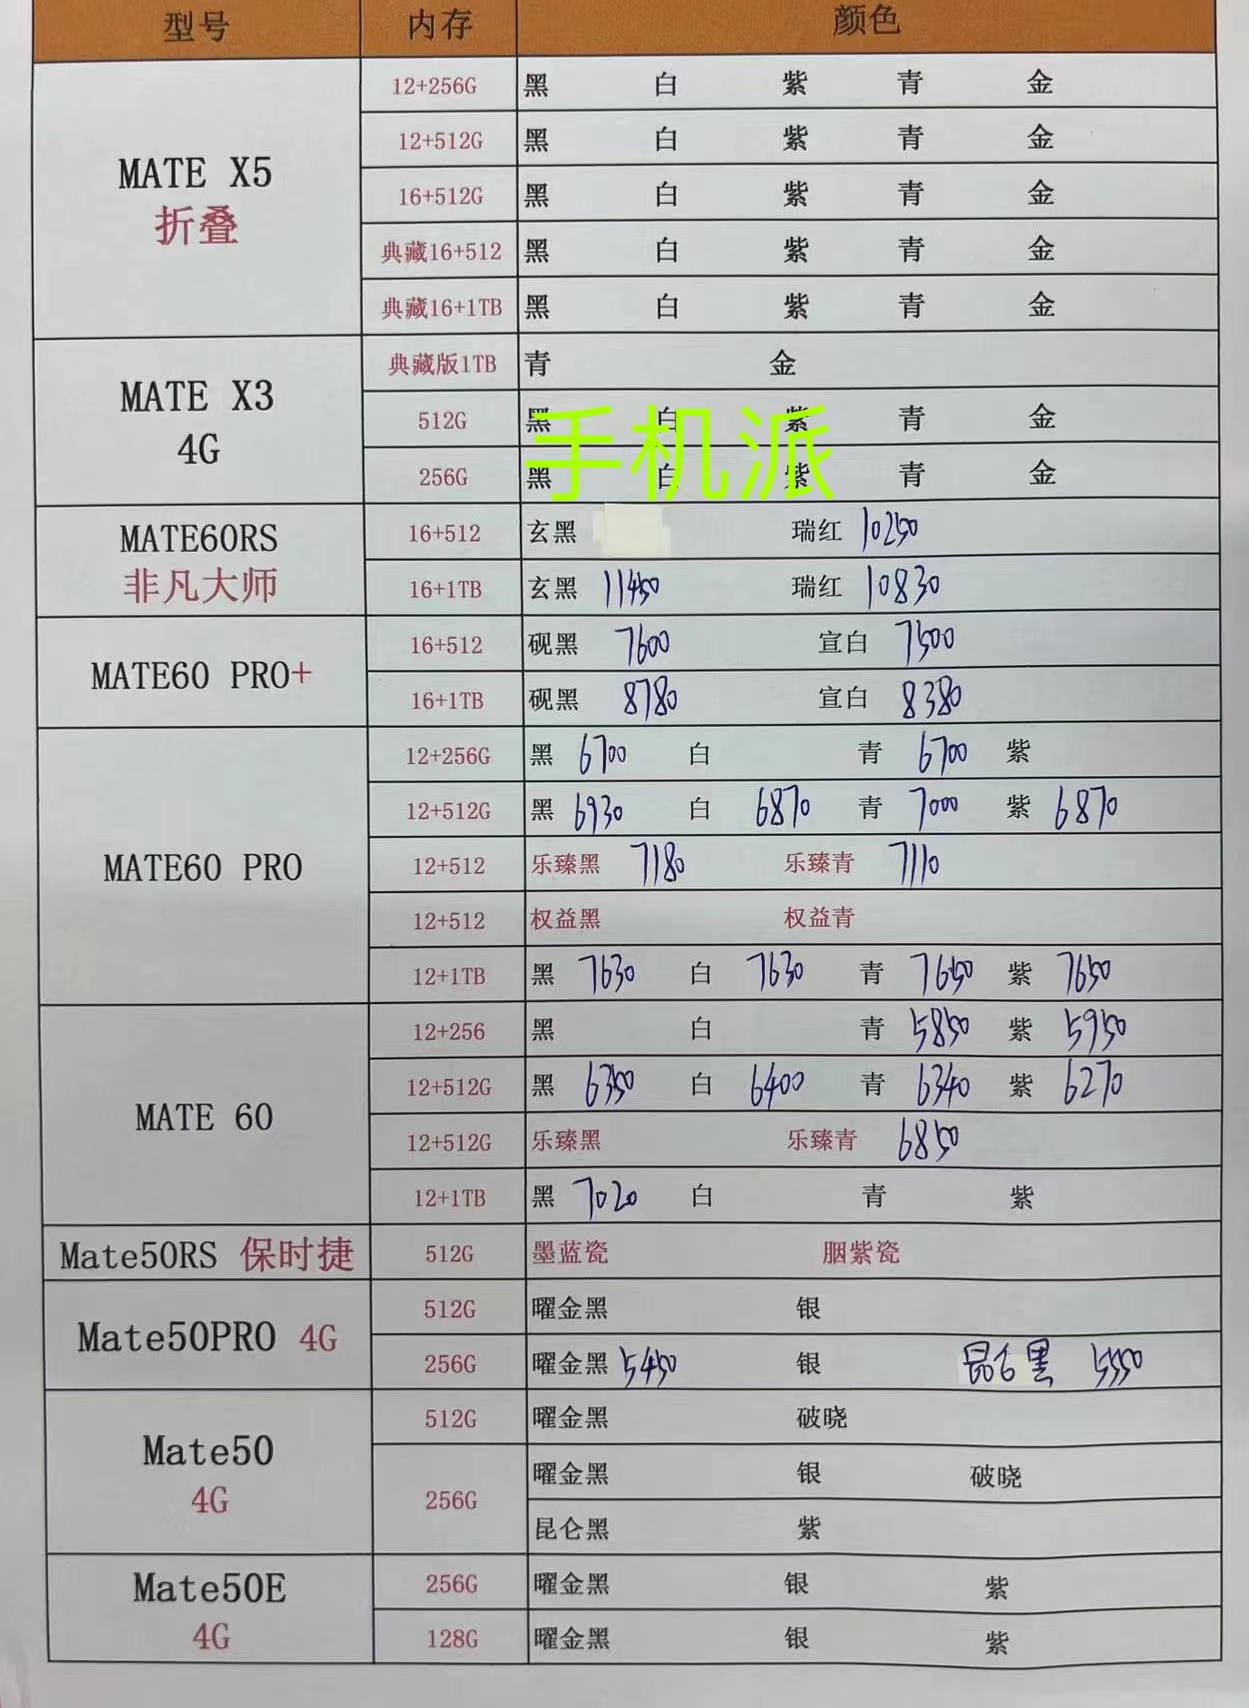 型号 内存 颜色
12+256G 黑 白 紫 青 金
12+512G 黑 白 紫 青 金
MATE X5
16+512G 黑 白 紫 青 金
折叠
典藏16+512 黑 白 紫 青 金
典藏16+1TB 黑 白 紫 青 金
典藏版1TB 青 金
MATE X3
512G 黑 白 紫 青 金
手机派
4G
256G 黑 白 紫 青 金
MATE60RS
16+512 玄黑 瑞红 10250
非凡大师
16+1TB 玄黑 11450 瑞红 10830
16+512 砚黑 7600 宣白 7500
MATE60 PRO+
16+1TB 砚黑 8780 宣白 8380
12+256G 黑 6700 白 青 6700 紫
12+512G 黑 6930 白 6870 青 7000 紫 6870
MATE60 PRO
12+512 乐臻黑 7180 乐臻青 7110
12+512 权益黑 权益青
12+1TB 黑 7630 白 7630 青 7650 紫 7650
12+256 黑 白 青 5850 紫 5950
12+512G 黑 6350 白 6400 青 6340 紫 6270
MATE 60
12+512G 乐臻黑 乐臻青 6850
12+1TB 黑 7020 白 青 紫
Mate50RS 保时捷 512G 墨蓝瓷 胭紫瓷
512G 曜金黑 银
Mate50PRO 4G
256G 曜金黑 5450 银 昆仑黑 5550
512G 曜金黑 破晓
Mate50
4G
256G
曜金黑 银 破晓
昆仑黑 紫
Mate50E
256G 曜金黑 银 紫
4G
128G 曜金黑 银 紫